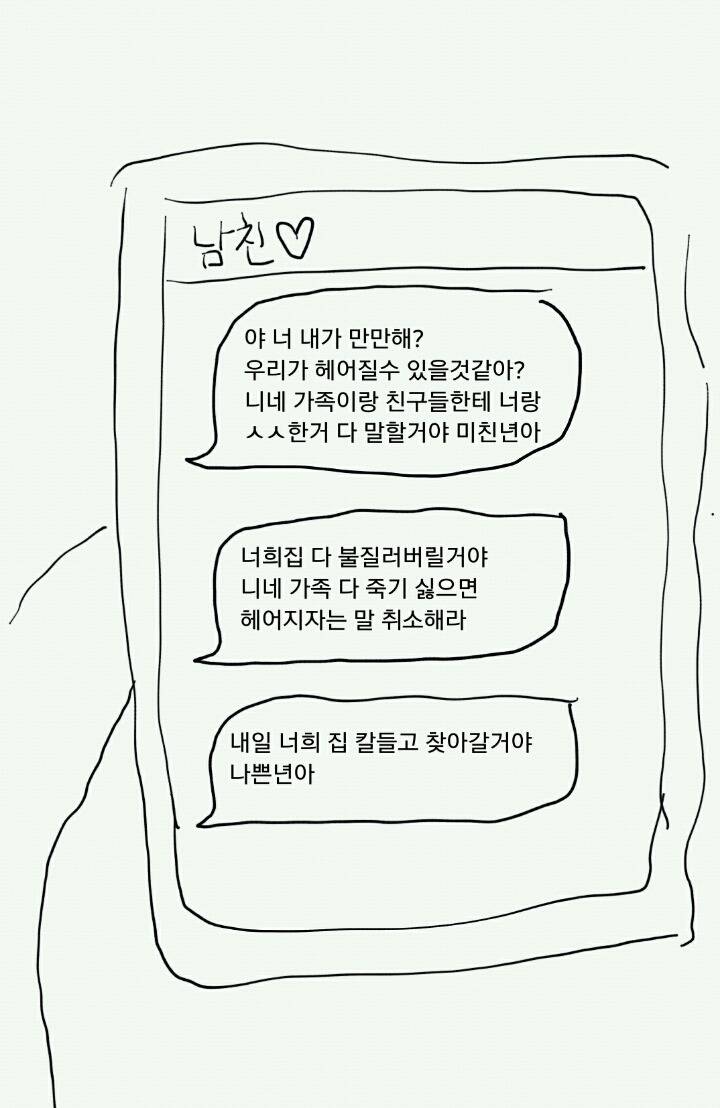 남친♡
야 너 내가 만만해?
우리가 헤어질수 있을것같아?
니네 가족이랑 친구들한테 너랑
ㅅㅅ한거 다 말할거야 미친년아
너희집 다 불질러버릴거야
니네 가족 다 죽기 싫으면
헤어지자는 말 취소해라
내일 너희 집 칼들고 찾아갈거야
나쁜년아